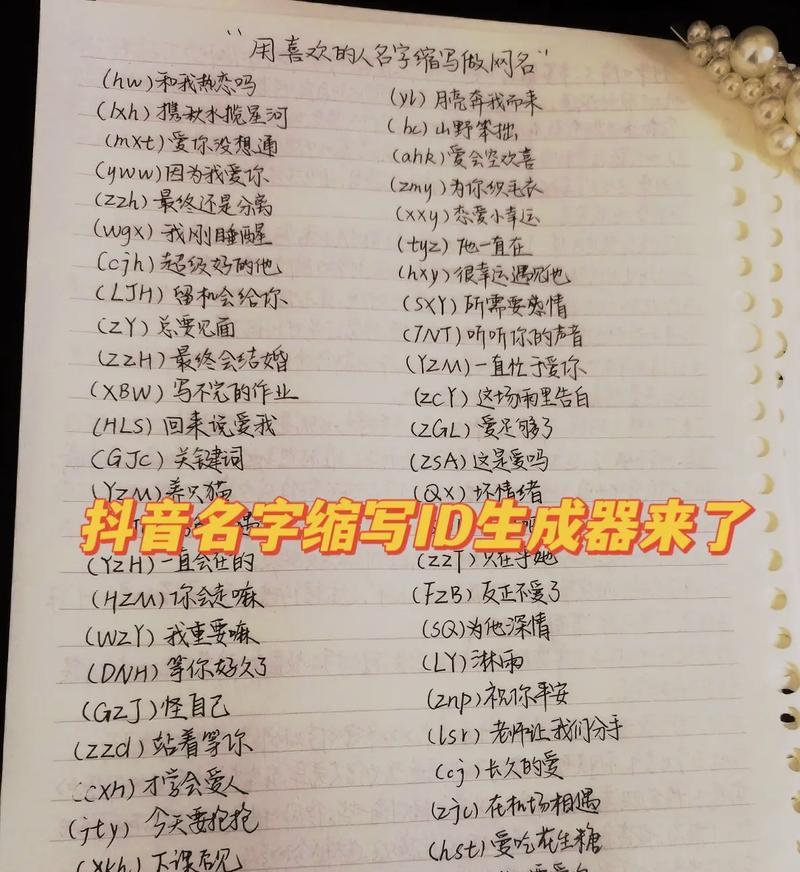 "用喜欢的人名字缩写做网名"
(hw)和我热恋吗
(lxh)携秋水揽星河
(mxt)爱你没想通
(yww)因为我爱你
(zzh)最终还是分离
(wgx)我刚睡醒
(cjh)超级好的他
(LJH)留机会给你
(ZY)总要见面
(ZZH)最终会结婚
(XBW)写不完的作业
(HLS)回来说爱我
(GJC)关键词
(YZM)养只猫
(YZH)一直会在的
(HZM)你会走嘛
(WZY)我重要嘛
(DNH)等你好久了
(GZJ)怪自己
(zzd)站着等你
(cxh)才学会爱人
(jty)今天要抱抱
(xkh)下课后见
(yl)月亮奔我而来
(hc)山野笨拙
(ahk)爱会空欢喜
(zmy)为你织毛衣
(xxy)恋爱小幸运
(tyz)他一直在
(hxy)很幸运遇见他
(SXY)所需要感情
(TNT)听听你的声音
(YZM)一直忙于爱你
(ZCY)这场雨里告白
(ZGL)爱足够了
(ZSA)这是爱吗
(QX)坏情绪
(ZZT)只在乎她
(FZB)反正不爱了
(SQ)为他深情
(LY)淋雨
(znp)祝你平安
(lsr)老师让我们分手
(cj)长久的爱
(zjc)在机场相遇
(hst)爱吃花生糖
抖音名字缩写ID生成器来了